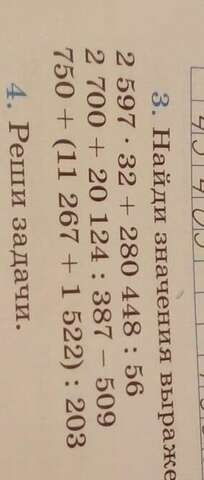 3. Найди значения выраже
2 597 · 32 + 280 448 : 56
2 700 + 20 124 : 387 − 509
750 + (11 267 + 1 522) : 203
4. Реши задачи.